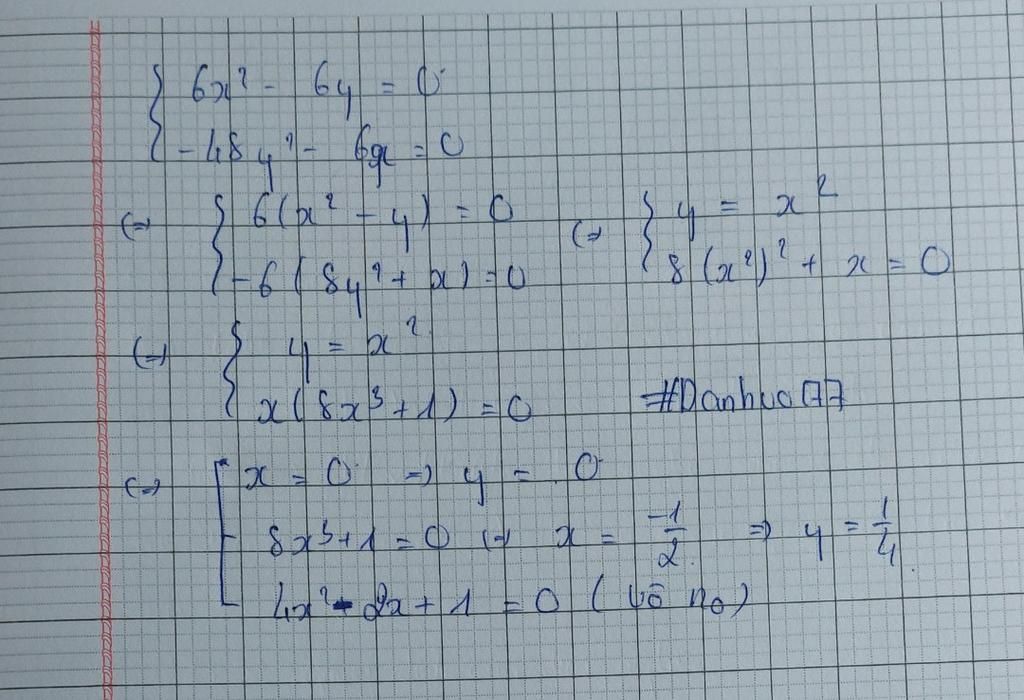 { 6x² - 6y = 0
-48y² - 6x = 0
(=) { 6(x² - y) = 0 (=) { y = x²
-6(8y² + x) = 0 8(x²)² + x = 0
(=) { y = x²
x(8x³ + 1) = 0 #Danhuo77
(=) [ x = 0 => y = 0
8x³ + 1 = 0 (=) x = -1/2 => y = 1/4
4x² - 2x + 1 = 0 (vô no)